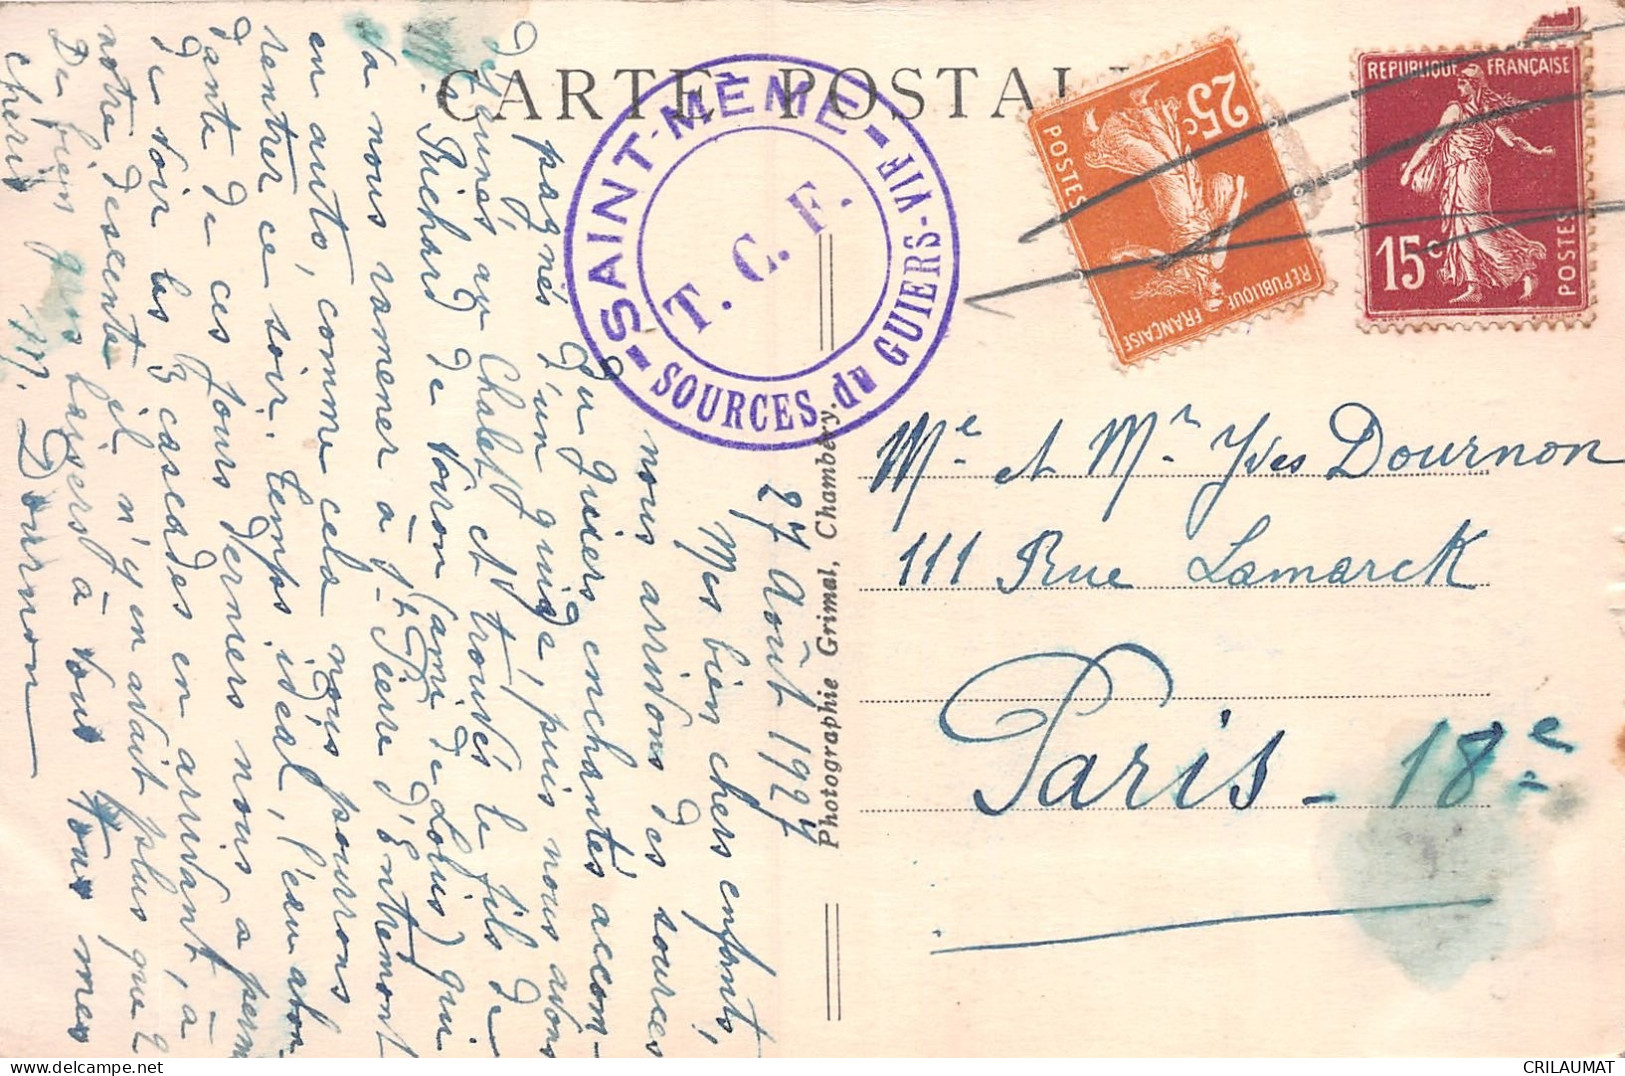 CARTE POSTALE
SAINT-MÊME
VIF
SOURCES du GUIERS-
T. C. F.
25c
POSTES
REPUBLIQUE FRANÇAISE
REPUBLIQUE FRANÇAISE
15c
POSTES
27 Août 1927
Mes bien chers enfants,
nous arrivons des sources
du guiers, enchantés, accom-
pagnés d'un guide, puis nous avons
déjeuné au Chalet et trouvés le fils de
Mr Richard de Voiron (ami de Louis) qui
va nous ramener à St-Pierre d'Entremont
en auto, comme cela nous pourrons
rentrer ce soir. temps idéal, l'eau abon-
dante de ces jours derniers nous a perm
de voir les 3 cascades en arrivant, à
notre descente il n'y en avait plus que 2
De bien gros baisers à vous tous mes
chéris M. Dournon
Photographie Grimal, Chambéry.
Me et Mr Yves Dournon
111 Rue Lamarck
Paris - 18e
CRILAUMAT